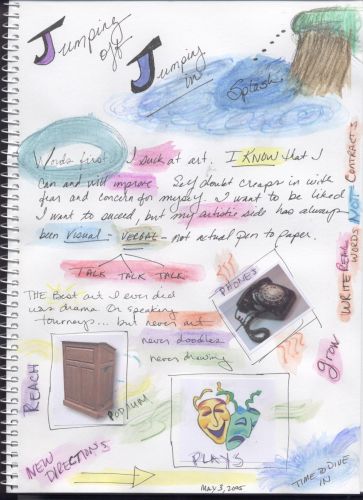 Jumping
off
Jumping
in
Splash
Words first. I suck at art. I KNOW that I
can and will improve Self doubt creeps in with
fear and concern for myself. I want to be liked
I want to succeed, but my artistic side has always
been visual - VERBAL - not actual pen to paper.
TALK TALK TALK
The Best art I ever did
was drama or speaking
tourneys... but never art
never doodles
never drawing
PHONES
WRITE REAL
WORDS NOT CONTRACTS
grow
REACH
PODIUM
PLAYS
NEW
DIRECTIONS
MAY 3, 2005
TIME TO DIVE
IN